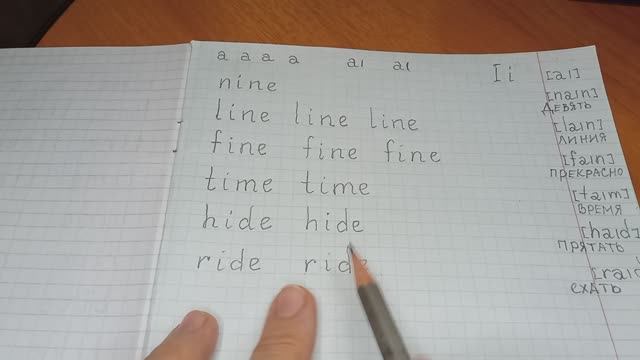 a a a a aı aı I i [aı]
nine [naın]
ДЕВЯТЬ
line line line [laın]
ЛИНИЯ
fine fine fine [faın]
ПРЕКРАСНО
time time [taım]
ВРЕМЯ
hide hide [haıd]
ПРЯТАТЬ
ride
ЕХАТЬ